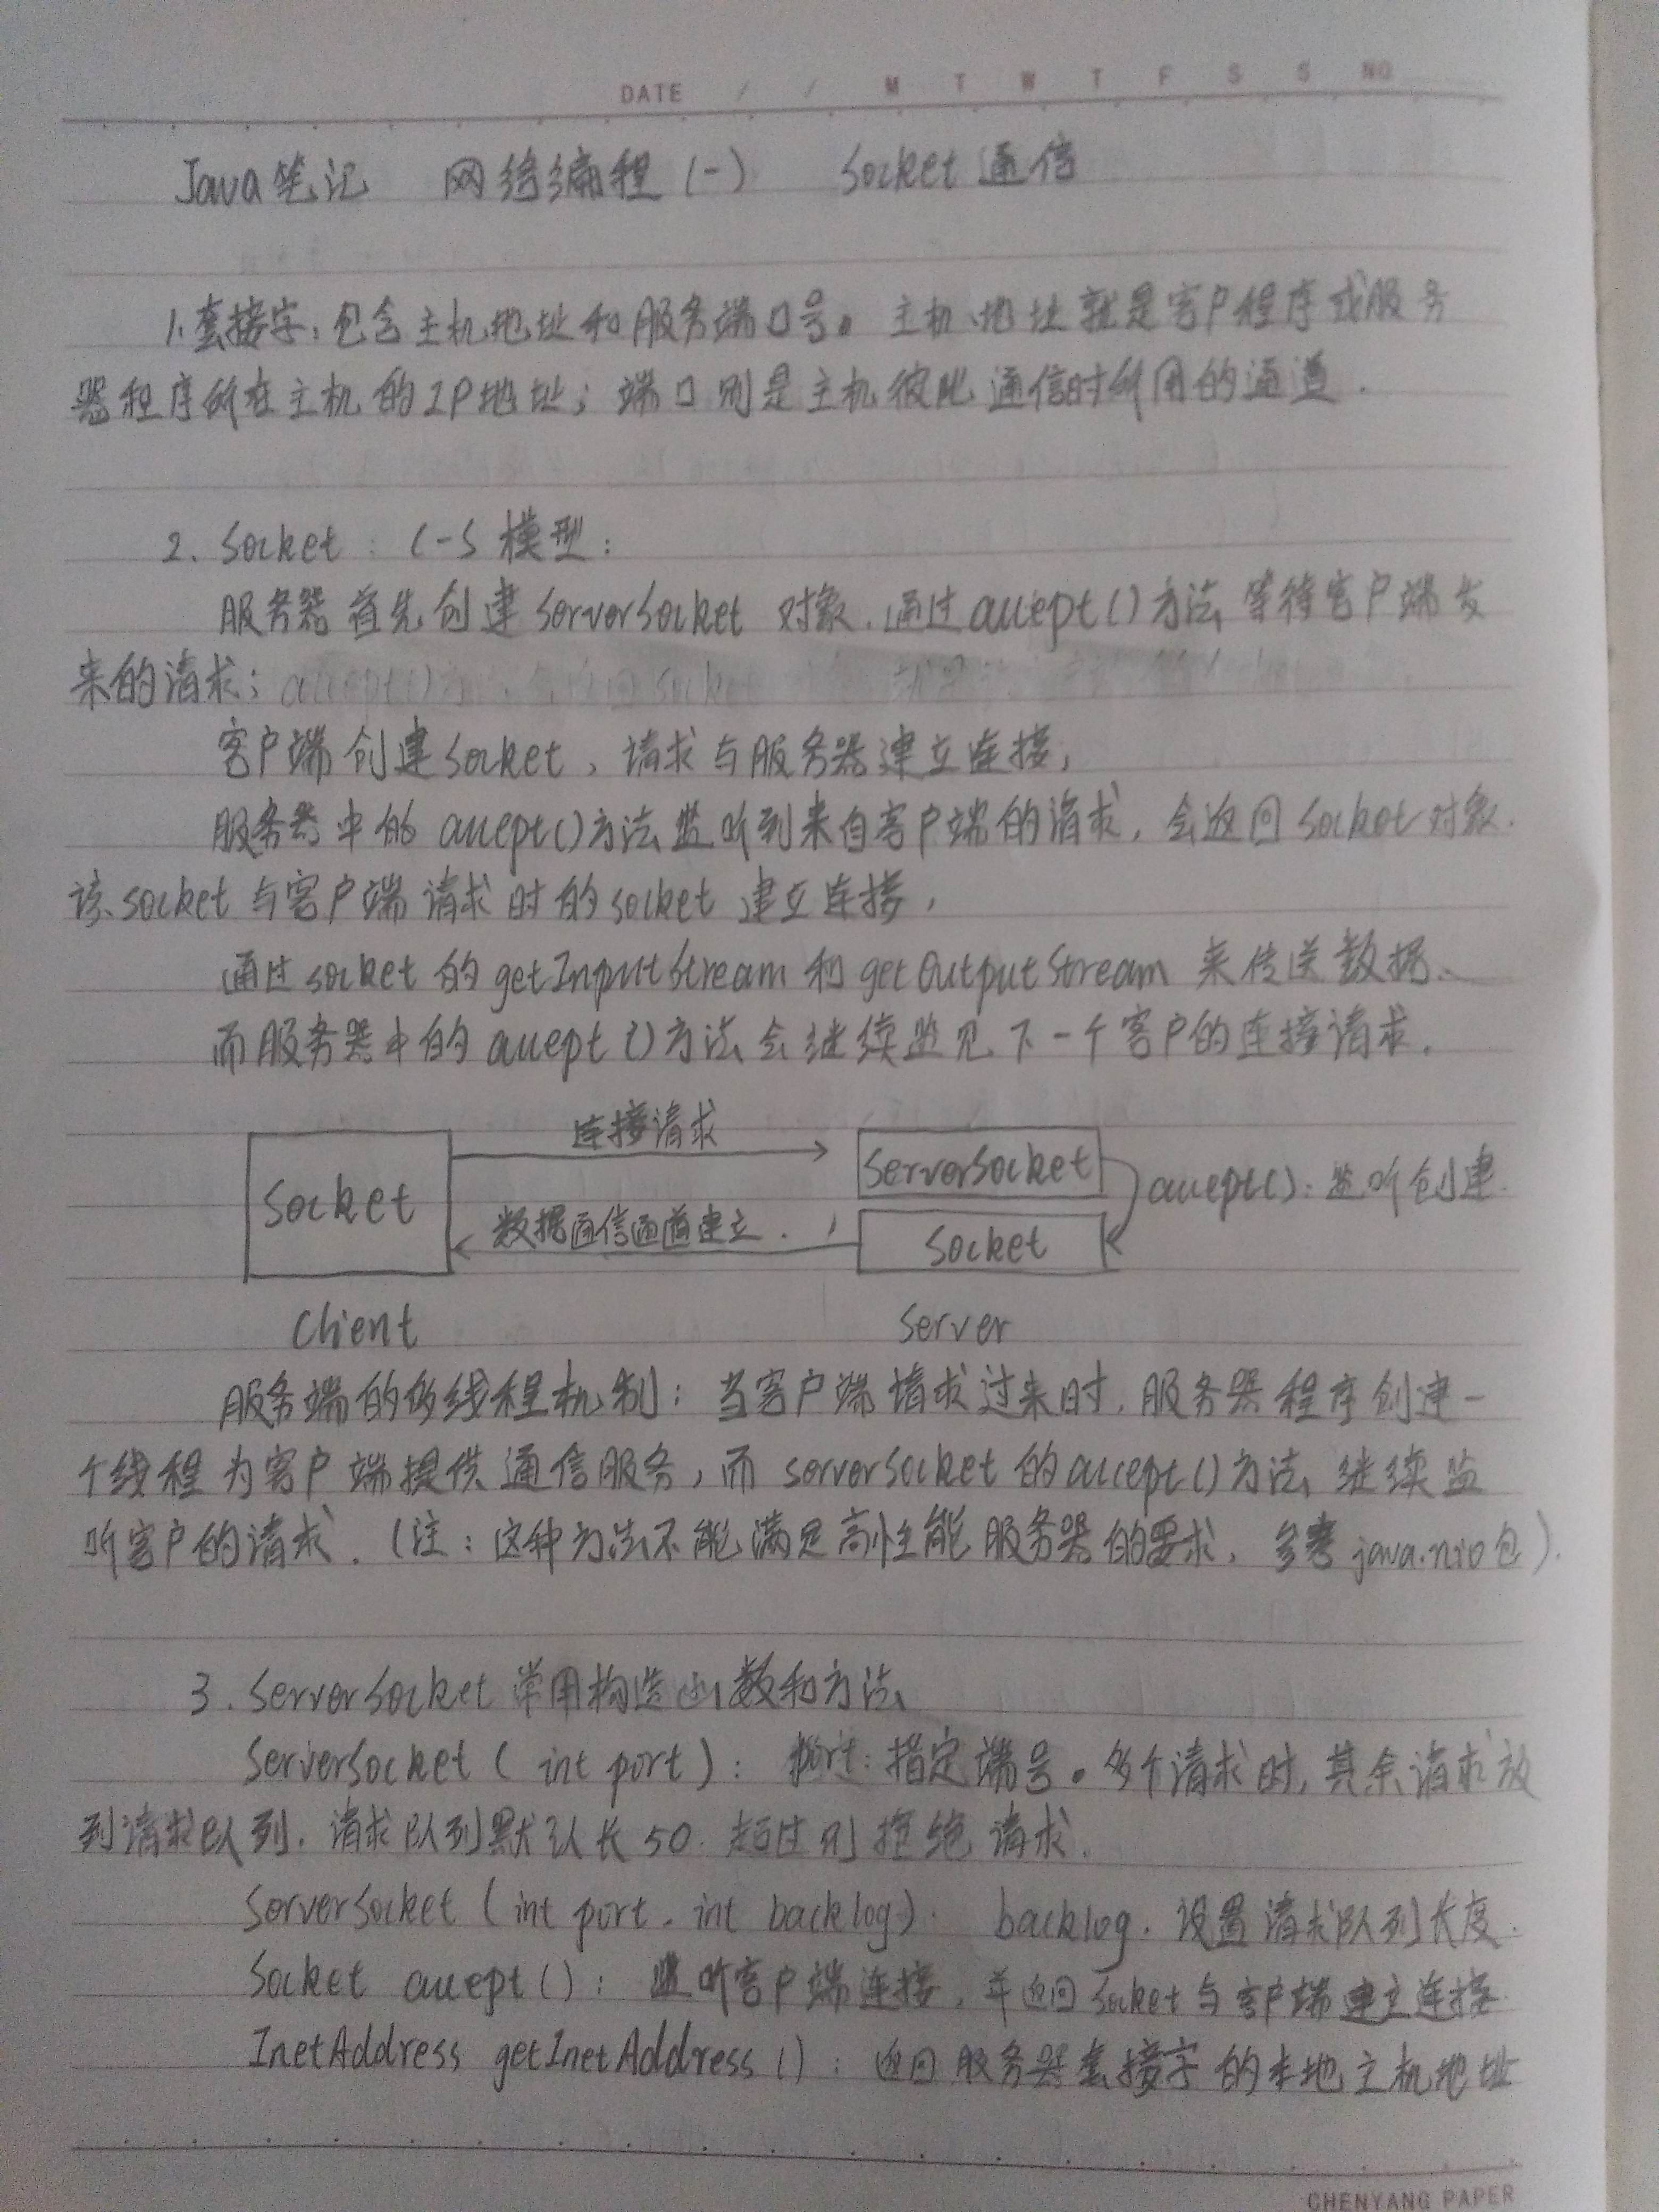 DATE / / M T W T F S S NO
Java笔记 网络编程(一) Socket通信
1.套接字:包含主机地址和服务端口号。主机地址就是客户程序或服务
器程序所在主机的IP地址;端口则是主机彼此通信时所用的通道.
2. Socket: C-S模型:
服务器首先创建ServerSocket 对象,通过accept()方法等待客户端发
来的请求;
客户端创建Socket,请求与服务器建立连接;
服务器中的accept()方法监听到来自客户端的请求,会返回Socket对象.
该socket与客户端请求时的socket建立连接,
通过socket的getInputStream和getOutputStream来传送数据.
而服务器中的accept()方法会继续监见下一个客户的连接请求.
连接请求
Socket ServerSocket accept():监听创建
数据通信通道建立. Socket
Client Server
服务端的多线程机制:当客户端请求过来时,服务器程序创建一
个线程为客户端提供通信服务,而serverSocket的accept()方法继续监
听客户的请求.(注:这种方法不能满足高性能服务器的要求,参考java.nio包).
3. ServerSocket常用构造函数和方法
ServerSocket ( int port ): port:指定端号。多个请求时,其余请求放
到请求队列.请求队列默认长50.超过则拒绝请求.
ServerSocket (int port, int backlog). backlog.设置请求队列长度.
Socket accept(): 监听客户端连接,并返回Socket与客户端建立连接
InetAddress getInetAddress(): 返回服务器套接字的本地主机地址
CHENYANG PAPER